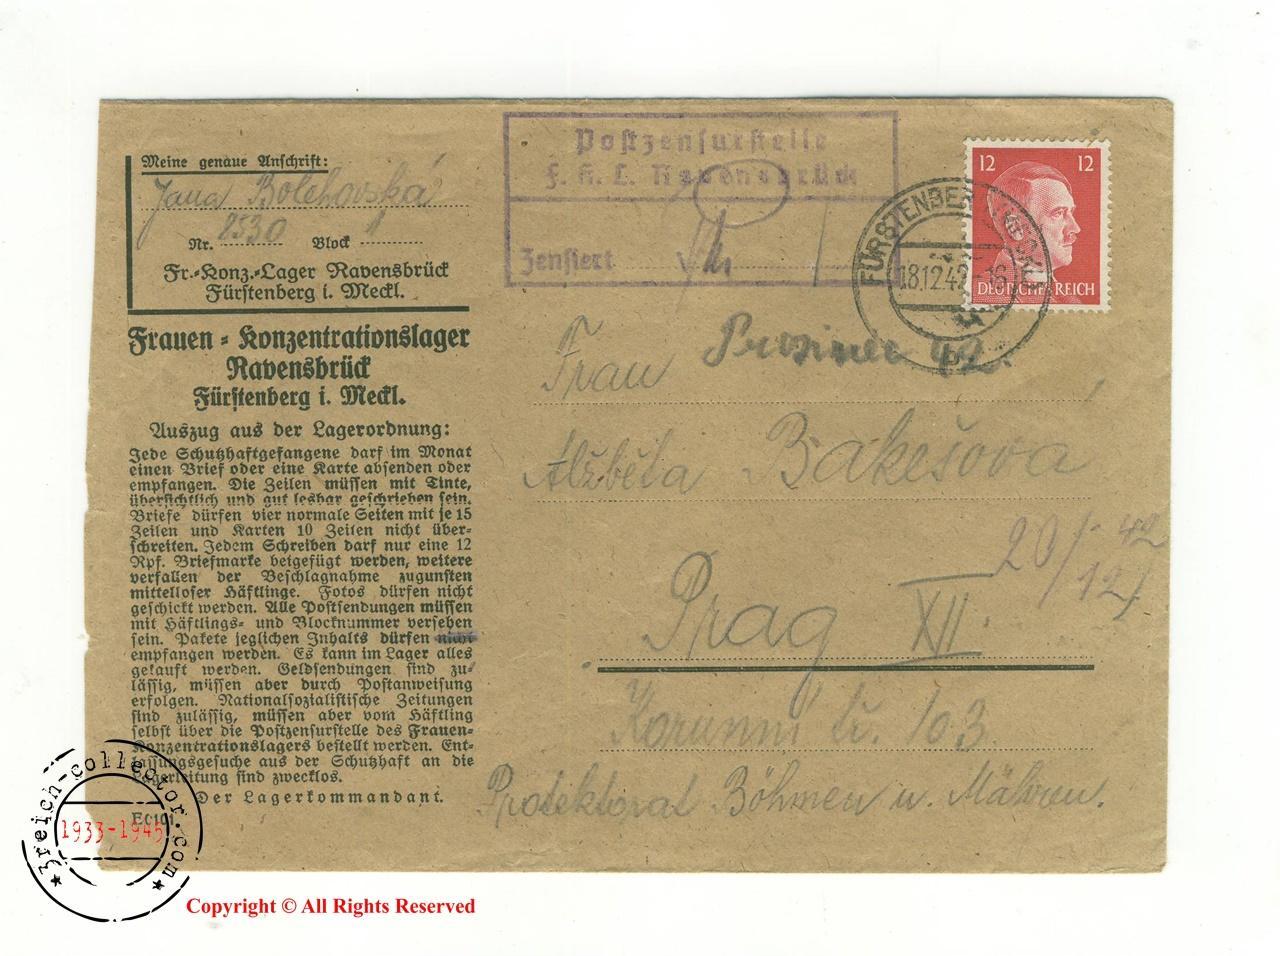 Meine genaue Anschrift:
Jana Bolehovská
Nr. 2530 Block 1
Fr.-Konz.-Lager Ravensbrück
Fürstenberg i. Meckl.
Frauen-Konzentrationslager
Ravensbrück
Fürstenberg i. Meckl.
Auszug aus der Lagerordnung:
Jede Schutzhaftgefangene darf im Monat
einen Brief oder eine Karte absenden oder
empfangen. Die Zeilen müssen mit Tinte,
übersichtlich und gut lesbar geschrieben sein.
Briefe dürfen vier normale Seiten mit je 15
Zeilen und Karten 10 Zeilen nicht über-
schreiten. Jedem Schreiben darf nur eine 12
Rpf. Briefmarke beigefügt werden, weitere
verfallen der Beschlagnahme zugunsten
mittelloser Häftlinge. Fotos dürfen nicht
geschickt werden. Alle Postsendungen müssen
mit Häftlings- und Blocknummer versehen
sein. Pakete jeglichen Inhalts dürfen nicht
empfangen werden. Es kann im Lager alles
gekauft werden. Geldsendungen sind zu-
lässig, müssen aber durch Postanweisung
erfolgen. Nationalsozialistische Zeitungen
sind zulässig, müssen aber vom Häftling
selbst über die Postzensurstelle des Frauen-
Konzentrationslagers bestellt werden. Ent-
lassungsgesuche aus der Schutzhaft an die
Lagerleitung sind zwecklos.
Der Lagerkommandant.
E0101
Postzensurstelle
F. K. L. Ravensbrück
Zensiert
FÜRSTENBERG (MECKL)
18.12.42-16
b
12 12
DEUTSCHES REICH
Frau Prosinec 42.
Alžběta Bakešova
20/12 42
Prag XII.
Korunni tř. 103
Protektorat Böhmen u. Mähren.
3reich-collector.com
1933-1945
Copyright © All Rights Reserved